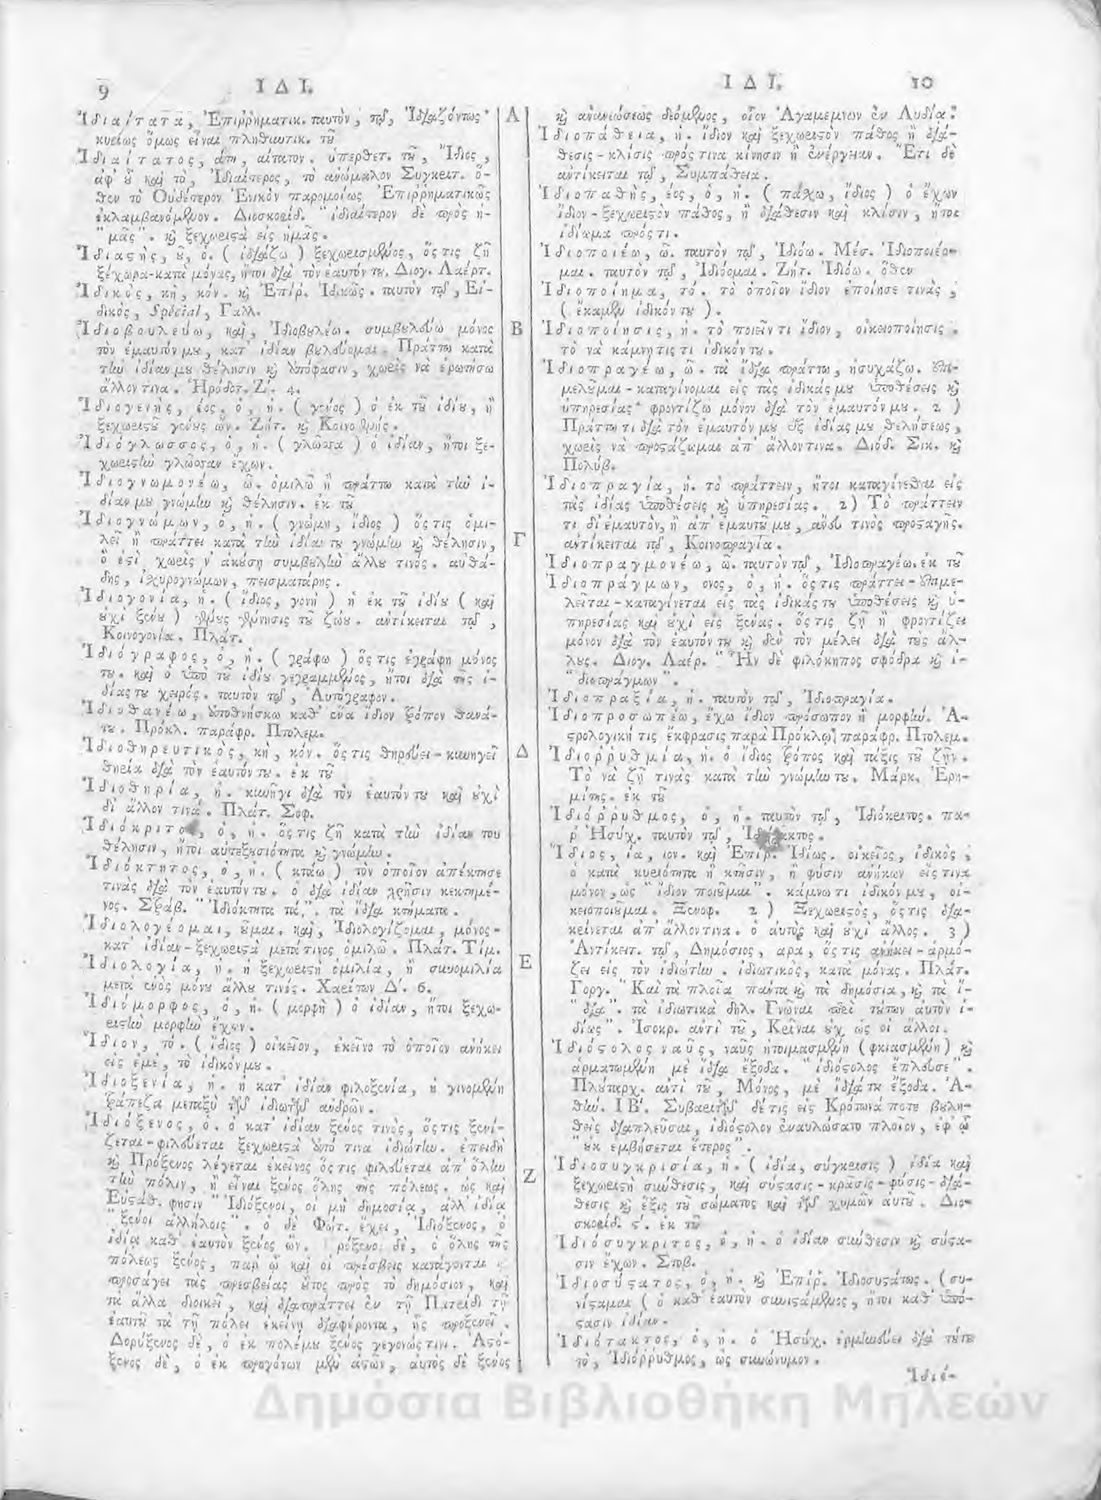 9 ΙΔΙ.
Ἰδιαίτατα, Ἐπιῤῥηματικ. ταυτὸν, τῷ, Ἰδιαζόντως·
κυρίως ὅμως εἶναι πληθυντικ. τοῦ
Ἰδιαίτατος, άτη, αίτατον. ὑπερθετ. τοῦ, Ἴδιος,
ἀφ' οὗ καὶ τὸ, Ἰδιαίτερος, τὸ ἀνώμαλον Συγκριτ. ὅ-
θεν τὸ Οὐδέτερον Ἑνικὸν παρομοίως Ἐπιῤῥηματικῶς
ἐκλαμβανόμενον. Διοσκορίδ. "ἰδιαίτερον δὲ πρὸς ἡ-
"μᾶς". καὶ ξεχωριστὰ εἰς ἡμᾶς.
Ἰδιαστὴς, οῦ, ὁ. (ἰδιάζω) ξεχωρισμένος, ὅστις ζῇ
ξέχωρα-κατὰ μόνας, ἤτοι διὰ τὸν ἑαυτόν του. Διογ. Λαέρτ.
Ἰδικὸς, κὴ, κόν. καὶ Ἐπίρ. Ἰδικῶς. ταυτὸν τῷ, Εἰ-
δικὸς, Spécial, Γαλλ.
Ἰδιοβουλεύω, καὶ, Ἰδιοβουλέω. συμβουλεύω μόνος
τὸν ἐμαυτόν μου, κατ' ἰδίαν βουλεύομαι. Πράττω κατὰ
τὴν ἰδίαν μου θέλησιν καὶ ἀπόφασιν, χωρὶς νὰ ἐρωτήσω
ἄλλον τινα. Ἡρόδοτ. Ζ. 4.
Ἰδιογενὴς, έος, ὁ, ἡ. (γένος) ὁ ἐκ τοῦ ἰδίου, ἢ
ξεχωριστοῦ γένους ὤν. Ζήτ. καὶ Κοινογενής.
Ἰδιόγλωσσος, ὁ, ἡ. (γλῶσσα) ὁ ἰδίαν, ἤτοι ξε-
χωριστὴν γλῶσσαν ἔχων.
Ἰδιογνωμονέω, ῶ. ὁμιλῶ ἢ πράττω κατὰ τὴν ἰ-
δίαν μου γνώμην καὶ θέλησιν. ἐκ τοῦ
Ἰδιογνώμων, ὁ, ἡ. (γνώμη, ἴδιος) ὅστις ὁμι-
λεῖ ἢ πράττει κατὰ τὴν ἰδίαν του γνώμην καὶ θέλησιν,
ὅ ἐστὶ χωρὶς ν' ἀκούσῃ συμβουλὴν ἄλλου τινός. αὐθά-
δης, ἰσχυρογνώμων, πεισματάρης.
Ἰδιογονία, ἡ. (ἴδιος, γονὴ) ἡ ἐκ τοῦ ἰδίου (καὶ
οὐχὶ ξένου) γένους γέννησις του ζώου. ἀντίκειται τῷ,
Κοινογονία. Πλάτ.
Ἰδιόγραφος, ὁ, ἡ. (γράφω) ὅστις ἐγράφη μόνος
του. καὶ ὁ ὑπὸ τοῦ ἰδίου γεγραμμένος, ἤτοι διὰ τῆς ἰ-
δίας του χειρός. ταυτὸν τῷ, Αὐτόγραφον.
Ἰδιοθανέω, ἀποθνήσκω καθ' ἕνα ἴδιον τρόπον θανά-
του. Πρόκλ. παράφρ. Πτολεμ.
Ἰδιοθηρευτικὸς, κὴ, κόν. ὅστις θηρεύει-κυνηγεῖ
θηρία διὰ τὸν ἑαυτόν του. ἐκ τοῦ
Ἰδιοθηρία, ἡ. κυνῆγι διὰ τὸν ἑαυτόν του καὶ οὐχὶ
δι' ἄλλον τινά. Πλάτ. Σοφ.
Ἰδιόκριτος, ὁ, ἡ. ὅστις ζῇ κατὰ τὴν ἰδίαν του
θέλησιν, ἤτοι αὐτεξουσιότητα καὶ γνώμην.
Ἰδιόκτητος, ὁ, ἡ. (κτάω) τὸν ὁποῖον ἀπέκτησε
τινὰς διὰ τὸν ἑαυτόν του. ὁ διὰ ἰδίαν χρῆσιν κεκτημέ-
νος. Στράβ. "Ἰδιόκτητα τὰ,". τὰ ἴδια κτήματα.
Ἰδιολογέομαι, οῦμαι. καὶ, Ἰδιολογίζομαι, μόνος-
κατ' ἰδίαν-ξεχωριστὰ μετά τινος ὁμιλῶ. Πλάτ. Τίμ.
Ἰδιολογία, ἡ. ἡ ξεχωριστὴ ὁμιλία, ἢ συνομιλία
μετὰ ἑνὸς μόνου ἄλλου τινός. Χαρίτων Δ'. 6.
Ἰδιόμορφος, ὁ, ἡ. (μορφὴ) ὁ ἰδίαν, ἤτοι ξεχω-
ριστὴν μορφὴν ἔχων.
Ἴδιον, τό. (ἴδιος) οἰκεῖον, ἐκεῖνο τὸ ὁποῖον ἀνήκει
εἰς ἐμὲ, τὸ ἰδικόν μου.
Ἰδιοξενία, ἡ. ἡ κατ' ἰδίαν φιλοξενία, ἡ γινομένη
τράπεζα μεταξὺ τῶν ἰδιωτῶν ἀνδρῶν.
Ἰδιόξενος, ὁ. ὁ κατ' ἰδίαν ξένος τινὸς, ὅστις ξενί-
ζεται-φιλεύεται ξεχωριστὰ ἀπό τινα ἰδιώτην. ἐπειδὴ
καὶ Πρόξενος λέγεται ἐκεῖνος ὅστις φιλεύεται ἀπ' ὅλην
τὴν πόλιν, ἢ εἶναι ξένος ὅλης τῆς πόλεως. ὡς καὶ
Εὐστάθ. φησὶν "Ἰδιόξενοι, οἱ μὴ δημοσίᾳ, ἀλλ' ἰδίᾳ
"ξένοι ἀλλήλοις". ὁ δὲ Φώτ. ἔχει, Ἰδιόξενος, ὁ
ἰδίᾳ καθ' ἑαυτὸν ξένος ὤν. Πρόξενος δὲ, ὁ ὅλης τῆς
πόλεως ξένος, παρ' ᾧ καὶ οἱ πρέσβεις κατάγονται
προσάγει τὰς πρεσβείας οὗτος πρὸς τὸ δημόσιον, καὶ
τὰ ἄλλα διοικεῖ, καὶ διαπράττει ἐν τῇ Πατρίδι τῇ
ἑαυτοῦ τὰ τῇ πόλει ἐκείνῃ διαφέροντα, ἧς προξενεῖ.
Δορύξενος δὲ, ὁ ἐκ πολέμου ξένος γεγονώς τινι. Ἀστό-
ξενος δὲ, ὁ ἐκ προγόνων μὲν ἀστῶν, αὐτὸς δὲ ξένος
Α
Β
Γ
Δ
Ε
Ζ
ΙΔΙ. 10
καὶ ἀνανεώσεως δεόμενος, οἷον Ἀγαμέμνων ἐν Λυδίᾳ.
Ἰδιοπάθεια, ἡ. ἴδιον καὶ ξεχωριστὸν πάθος ἢ διά-
θεσις-κλίσις πρός τινα κίνησιν ἢ ἐνέργειαν. Ἔτι δὲ
ἀντίκειται τῷ, Συμπάθεια.
Ἰδιοπαθὴς, έος, ὁ, ἡ. (πάθχω, ἴδιος) ὁ ἔχων
ἴδιον-ξεχωριστὸν πάθος, ἢ διάθεσιν καὶ κλίσιν, ἤτοι
ἰδίωμα πρός τι.
Ἰδιοποιέω, ῶ. ταυτὸν τῷ, Ἰδιόω. Μέσ. Ἰδιοποιέο-
μαι. ταυτὸν τῷ, Ἰδιόομαι. Ζήτ. Ἰδιόω. ὅθεν
Ἰδιοποίημα, τό. τὸ ὁποῖον ἴδιον ἐποίησε τινὰς,
(ἔκαμεν ἰδικόν του).
Ἰδιοποίησις, ἡ. τὸ ποιεῖν τι ἴδιον, οἰκειοποίησις.
τὸ νὰ κάμνῃ τίς τι ἰδικόν του.
Ἰδιοπραγέω, ῶ. τὰ ἴδια πράττω, ἡσυχάζω. ἐπι-
μελοῦμαι-καταγίνομαι εἰς τὰς ἰδικάς μου ὑποθέσεις καὶ
ὑπηρεσίας· φροντίζω μόνον διὰ τὸν ἐμαυτόν μου. 2)
Πράττω τι διὰ τὸν ἐμαυτόν μου ἐξ ἰδίας μου θελήσεως,
χωρὶς νὰ προστάζωμαι ἀπ' ἄλλον τινα. Διόδ. Σικ. καὶ
Πολύβ.
Ἰδιοπραγία, ἡ. τὸ πράττειν, ἤτοι καταγίνεσθαι εἰς
τὰς ἰδίας ὑποθέσεις καὶ ὑπηρεσίας. 2) Τὸ πράττειν
τι δι' ἐμαυτὸν, ἢ ἀπ' ἐμαυτοῦ μου, ἄνευ τινὸς προσταγῆς.
ἀντίκειται τῷ, Κοινοπραγία.
Ἰδιοπραγμονέω, ῶ. ταυτὸν τῷ, Ἰδιοπραγέω. ἐκ τοῦ
Ἰδιοπράγμων, ονος, ὁ, ἡ. ὅστις πράττει-ἐπιμε-
λεῖται-καταγίνεται εἰς τὰς ἰδικάς του ὑποθέσεις καὶ ὑ-
πηρεσίας καὶ οὐχὶ εἰς ξένας. ὅστις ζῇ ἢ φροντίζει
μόνον διὰ τὸν ἑαυτόν του καὶ δὲν τὸν μέλει διὰ τοὺς ἄλ-
λους. Διογ. Λαέρ. "Ἦν δὲ φιλόκηπος σφόδρα καὶ ἰ-
"διοπράγμων".
Ἰδιοπραξία, ἡ. ταυτὸν τῷ, Ἰδιοπραγία.
Ἰδιοπροσωπέω, ἔχω ἴδιον πρόσωπον ἢ μορφήν. Ἀ-
στρολογική τις ἔκφρασις παρὰ Πρόκλῳ παράφρ. Πτολεμ.
Ἰδιοῤῥυθμία, ἡ. ὁ ἴδιος τρόπος καὶ τάξις τοῦ ζῆν.
Τὸ νὰ ζῇ τινὰς κατὰ τὴν γνώμην του. Μάρκ. Ἐρη-
μίτης. ἐκ τοῦ
Ἰδιόῤῥυθμος, ὁ, ἡ. ταυτὸν τῷ, Ἰδιόκριτος. πα-
ρ' Ἡσύχ. ταυτὸν τῷ, Ἰδιότακτος.
Ἴδιος, ία, ιον. καὶ Ἐπίρ. Ἰδίως. οἰκεῖος, ἰδικὸς,
ὁ κατὰ κυριότητα ἢ κτῆσιν, ἢ φύσιν ἀνήκων εἴς τινα
μόνον, ὡς "ἴδιον ποιοῦμαι". κάμνω τι ἰδικόν μου, οἰ-
κειοποιοῦμαι. Ξενοφ. 2) Ξεχωριστὸς, ὅστις δια-
κρίνεται ἀπ' ἄλλον τινα. ὁ αὐτὸς καὶ οὐχὶ ἄλλος. 3)
Ἀντίκειτ. τῷ, Δημόσιος, αρα, ὅστις ἀνήκει-ἁρμό-
ζει εἰς τὸν ἰδιώτην. ἰδιωτικὸς, κατὰ μόνας. Πλάτ.
Γοργ. "Καὶ τὰ πλοῖα πάντα καὶ τὰ δημόσια, καὶ τὰ ἴ-
"δια". τὰ ἰδιωτικὰ δηλ. Γνῶναι περὶ τούτων αὐτὸν ἰ-
δίως". Ἰσοκρ. ἀντὶ τοῦ, Κρῖναι οὐχ ὡς οἱ ἄλλοι.
Ἰδιόστολος ναῦς, ναῦς ἡτοιμασμένη (φκιασμένη) καὶ
ἁρματωμένη μὲ ἴδια ἔξοδα. "ἰδιόστολος ἔπλευσε".
Πλούταρχ. ἀντὶ τοῦ, Μόνος, μὲ ἴδιά του ἔξοδα. Ἀ-
θήν. ΙΒ'. Συβαριτῶν δέ τις εἰς Κρότωνά ποτε βουλη-
θεὶς διαπλεῦσαι, ἰδιόστολον ἐναυλώσατο πλοῖον, ἐφ' ᾧ
"οὐκ ἐμβήσεται ἕτερος".
Ἰδιοσυγκρισία, ἡ. (ἰδία, σύγκρισις) ἰδία καὶ
ξεχωριστὴ συνθεσις, καὶ σύστασις-κρᾶσις-φύσις-διά-
θεσις καὶ ἕξις τοῦ σώματος καὶ τῶν χυμῶν αὐτοῦ. Διο-
σκορίδ. ϛ'. ἐκ τοῦ
Ἰδιόσυγκριτος, ὁ, ἡ. ὁ ἰδίαν σύνθεσιν καὶ σύστα-
σιν ἔχων. Στοβ.
Ἰδιοσύστατος, ὁ, ἡ. καὶ Ἐπίρ. Ἰδιοσυστάτως. (συ-
νίσταμαι ( ὁ καθ' ἑαυτὸν συνιστάμενος, ἤτοι καθ' ὑπό-
στασιν ἰδίαν.
Ἰδιότακτος, ὁ, ἡ. ὁ Ἡσύχ. ἑρμηνεύει διὰ τούτου
τὸ, Ἰδιόῤῥυθμος, ὡς συνώνυμον.
Ἰδιό-
Δημόσια Βιβλιοθήκη Μηλεών